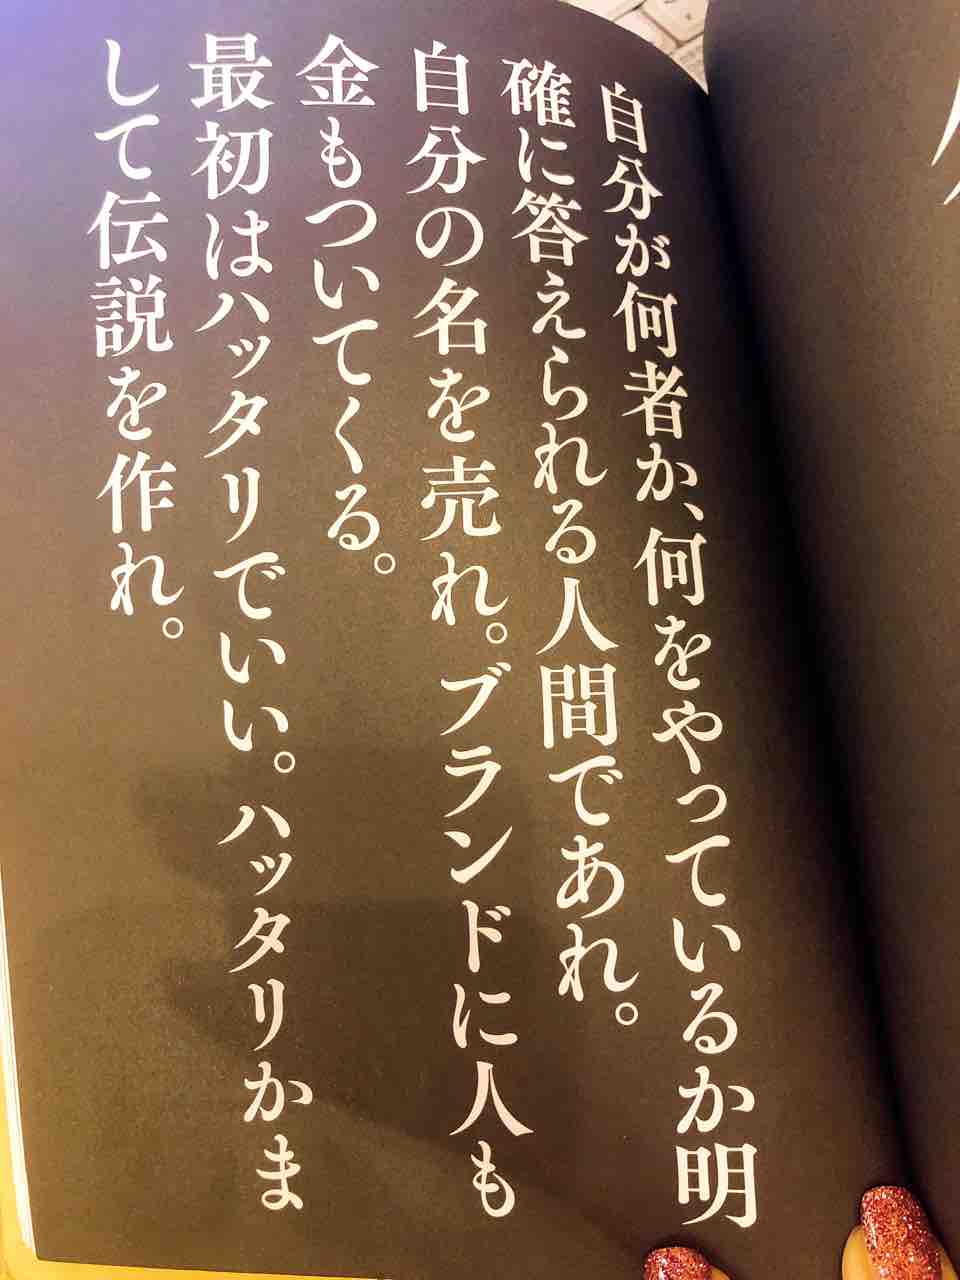 自分が何者か、何をやっているか明
確に答えられる人間であれ。
自分の名を売れ。ブランドに人も
金もついてくる。
最初はハッタリでいい。ハッタリかま
して伝説を作れ。